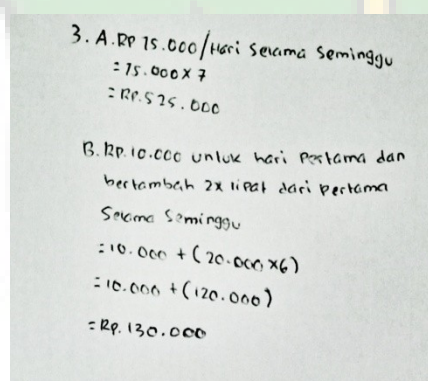 3. A. RP 75.000/Hari Selama Seminggu
= 75.000 x 7
= RP. 525.000
B. RP. 10.000 untuk hari Pertama dan
bertambah 2x lipat dari Pertama
Selama Seminggu
= 10.000 + (20.000 x6)
= 10.000 + (120.000)
= RP. 130.000